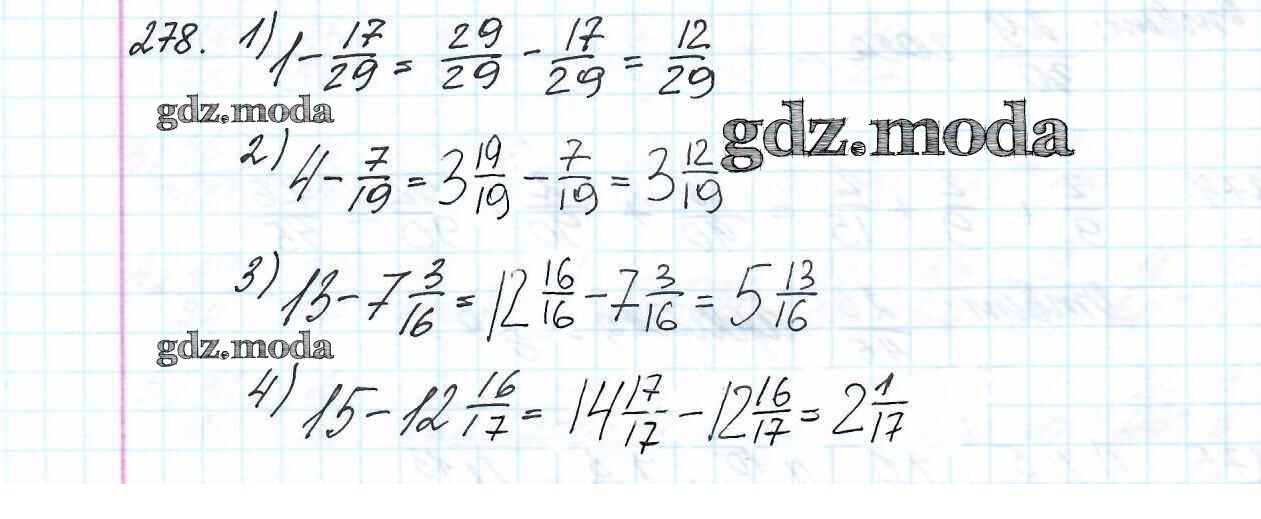 278. 1) 1 - 17/29 = 29/29 - 17/29 = 12/29
gdz.moda
gdz.moda
2) 4 - 7/19 = 3 19/19 - 7/19 = 3 12/19
3) 13 - 7 3/16 = 12 16/16 - 7 3/16 = 5 13/16
gdz.moda
4) 15 - 12 16/17 = 14 17/17 - 12 16/17 = 2 1/17